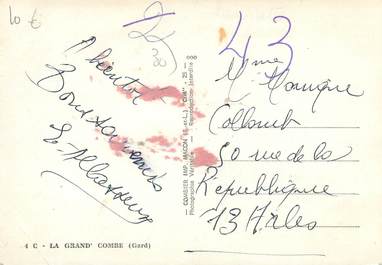 10 €
30
43
A bientôt
Bons souvenirs
000
— COMBIER IMP. MACON (S.-et-L.) "CIM" - 25 —
Photographie Véritable - Reproduction Interdite
Mme
Collomb
50 rue de la
République
13 Arles
4 C - LA GRAND' COMBE (Gard)